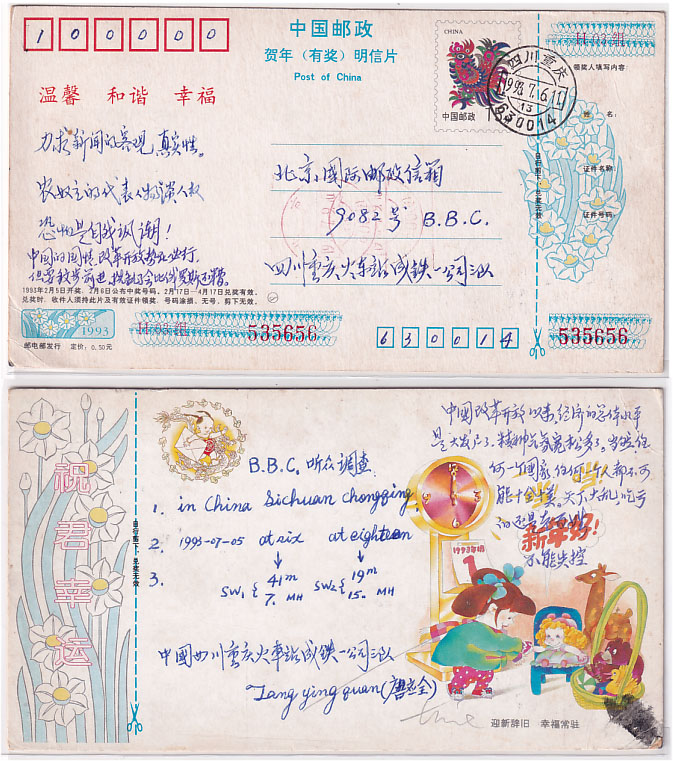 100000
中国邮政
贺年（有奖）明信片
Post of China
CHINA
中国邮政
四川重庆
1993.7.6.11
13
630014
H 03 组
领奖人填写内容:
姓名:
证件名称:
证件号码:
自行剪下、兑奖无效
温馨 和谐 幸福
力求新闻的客观真实性。
农奴主的代表人物谈人权
恐怕是自我讽嘲！
中国的国情改革开放势在必行,
北京国际邮政信箱
9082号 B.B.C.
四川重庆火车站成铁一公司三队
1993年2月5日开奖。2月6日公布中奖号码。2月17日—4月17日兑奖有效。
兑奖时、收件人须持此片及有效证件领奖。号码涂损、无号、剪下无效。
1993
邮电部发行 定价：0.50元
H 03 组
535656
630014
535656
祝君幸运
自行剪下、兑奖无效
B.B.C. 听众调查
1. in China Sichuan chongqing
2. 1993-07-05 at six at eighteen
3. SW1 { 41m 7. MH SW2 { 19m 15. MH
中国四川重庆火车站成铁一公司三队
Tang ying quan (唐应全)
中国改革开放以来,经济的总体水平
是大发户了.精神也富宽松多了。当然,任
何一个国家,任何一个人都不可
能十全十美。天下大乱,吃亏
的还是老百姓
不能失控
新年好!
1993年历
1
迎新辞旧 幸福常驻